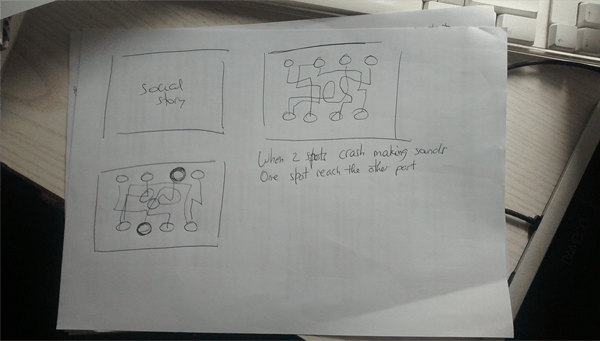 Social
story
When 2 spots crash making sounds
One spot reach the other part